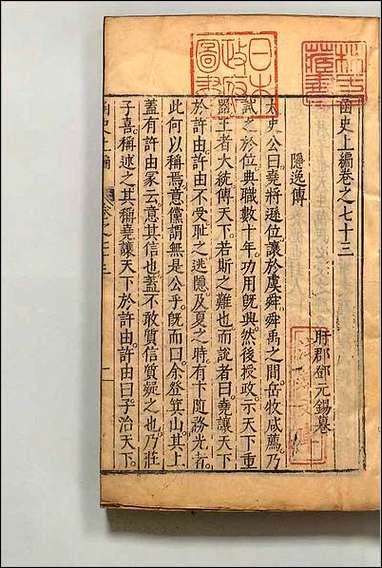 函史上編卷之七十三
盱郡鄧元錫纂
隱逸傳
太史公曰堯將遜位讓於虞舜舜禹之間岳牧咸薦乃
試之於位典職數十年功用既興然後授政示天下重
噐王者大統傳天下若斯之難也而說者曰堯讓天下
於許由許由不受耻之逃隱及夏之時有卞隨務光者
此何以稱焉意儻謂無是公乎既而曰余登箕山其上
蓋有許由冢云意其信也蓋不敢質信質疑之也乃莊
子喜稱述之其稱堯讓天下於許由許由曰子治天下
函史上編
卷之七十三
一
日本
政府
圖書